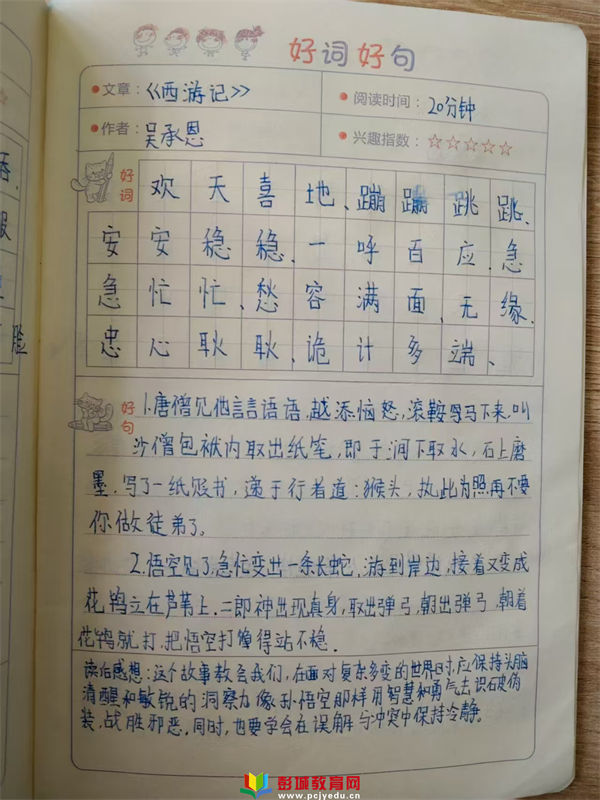 好词好句
文章：《西游记》 阅读时间：20分钟
作者：吴承恩 兴趣指数：☆☆☆☆☆
好词
欢天喜地、蹦蹦跳跳、
安安稳稳、一呼百应、急
急忙忙、愁容满面、无缘、
忠心耿耿、诡计多端、
脸
好句
1.唐僧见他言言语语,越添恼怒,滚鞍下马来,叫
沙僧包袱内取出纸笔,即于涧下取水,石上磨
墨,写了一纸贬书,递于行者道:猴头,执此为照再不要
你做徒弟了。
2.悟空见了急忙变出一条长蛇,游到岸边,接着又变成
花鸨立在芦苇上,二郎神出现真身,取出弹弓,朝出弹弓,朝着
花鸨就打,把悟空打得站不稳.
读后感想:这个故事教会我们,在面对复杂多变的世界时,应保持头脑
清醒和敏锐的洞察力像孙悟空那样用智慧和勇气去识破伪
装,战胜邪恶,同时,也要学会在误解与冲突中保持冷静。
彭城教育网
www.pcjyedu.cn